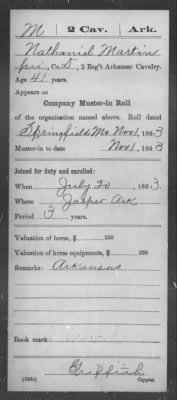 M | 2 Cav. | Ark.
Nathaniel Martin
pri, Co. D, 2 Reg't Arkansas Cavalry.
Age 41 years.
Appears on
Company Muster-in Roll
of the organization named above. Roll dated
Springfield Mo. Nov 1, 1863
Muster-in to date Nov 1, 1863
Joined for duty and enrolled:
When July 20, 1863.
Where Jasper Ark
Period 3 years.
Valuation of horse, $ 100
Valuation of horse equipments, $ 100
Remarks: Arkansas
Book mark:
Griffith
(356c) Copyist.